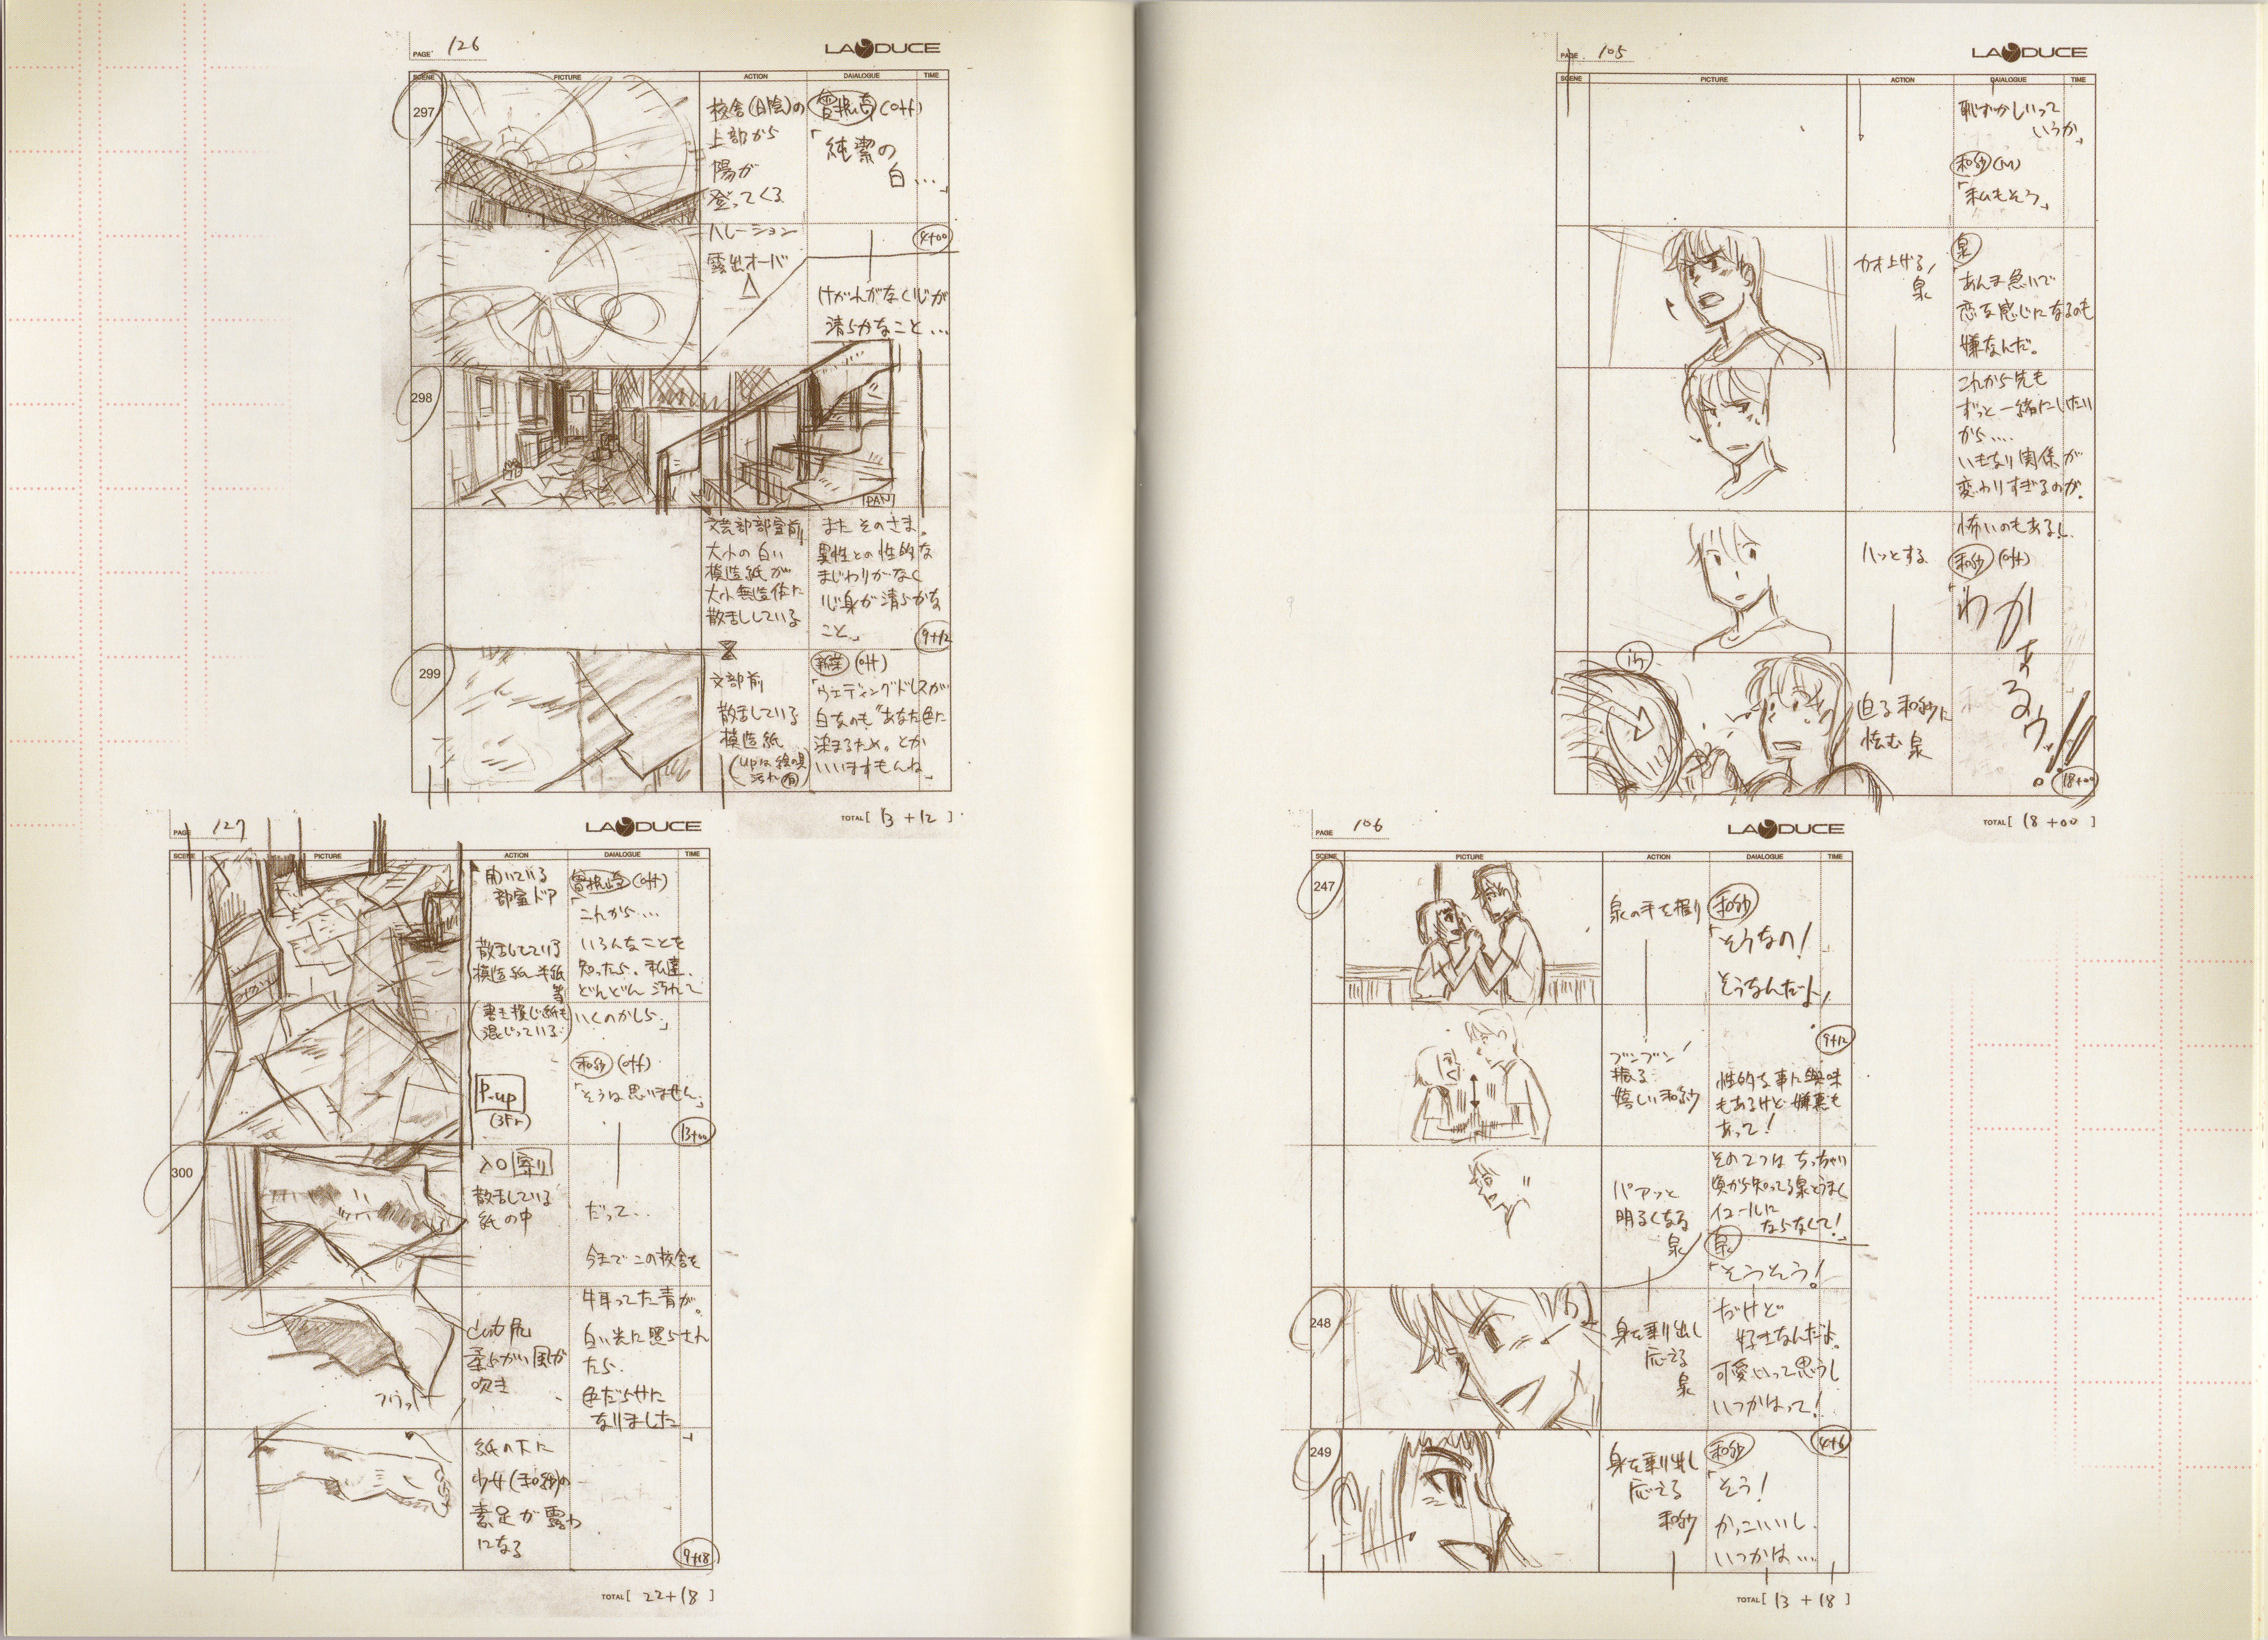 PAGE 126
LA DUCE
SCENE PICTURE ACTION DAIALOGUE TIME
297
校舎(日陰)の
上部から
陽が
登ってくる
ハレーション
露出オーバ
曽根崎 (off)
「純潔の
白…
4+00
けがれがなく心が
清らかなこと…
298
PAN
文芸部部室前
大小の白い
模造紙が
大小無造作に
散乱している
またそのさま。
異性との性的な
まじわりがなく
心身が清らかな
こと」
9+12
299
文部前
散乱している
模造紙
(upは絵の具
汚れ有)
新菜 (off)
「ウェディングドレスが
白なのも“あなた色に
染まるため。とか
いいますもんね」
TOTAL [ 13 + 12 ]
PAGE 127
LA DUCE
SCENE PICTURE ACTION DAIALOGUE TIME
開いている
部室ドア
散乱している
模造紙 半紙
等
(書き損じ紙も
混じっている)
P.up
(3Fr)
曽根崎 (off)
「これから…
いろんなことを
知ったら、私達、
どんどん汚れて
いくのかしら」
和紗 (off)
「そうは思いません。
13+00
300
入口 寄り
散乱している
紙の中
だって…
今までこの校舎を
柔らかい風が
吹き
フワッ
牛耳ってた青が。
白い光に照らされ
たら。
色だらけに
なりました」
紙の下に
少女(和紗)の
素足が露わ
になる
9+18
TOTAL [ 22 + 18 ]
PAGE 105
LA DUCE
SCENE PICTURE ACTION DAIALOGUE TIME
恥ずかしいって
いうか」
和紗 (M)
「私もそう」
カオ上げる
泉
泉
「あんま急いで
恋な感じになるのも
嫌なんだ。
これから先も
ずっと一緒にいたい
から…
いきなり関係が
変わりすぎるのが。
ハッとする
怖いのもある」
和紗 (off)
「わかぁるゥ!!
迫る和紗に
怯む泉
18+00
TOTAL [ 18 + 00 ]
PAGE 106
LA DUCE
SCENE PICTURE ACTION DAIALOGUE TIME
247
泉の手を握り
和紗
「そうなの!
そうなんだよ
9+12
ブンブン
振る
嬉しい和紗
性的な事に興味
もあるけど嫌悪も
あって!
パアッと
明るくなる
泉
その2つはちっちゃい
頃から知ってる泉とうまく
イコールに
ならなくて!」
泉
「そうそう!
248
身を乗り出し
応える
泉
だけど
好きなんだよ。
可愛いって思うし
いつかはって!
4+6
249
身を乗り出し
応える
和紗
和紗
「そう!
かっこいいし
いつかは…
TOTAL [ 13 + 18 ]